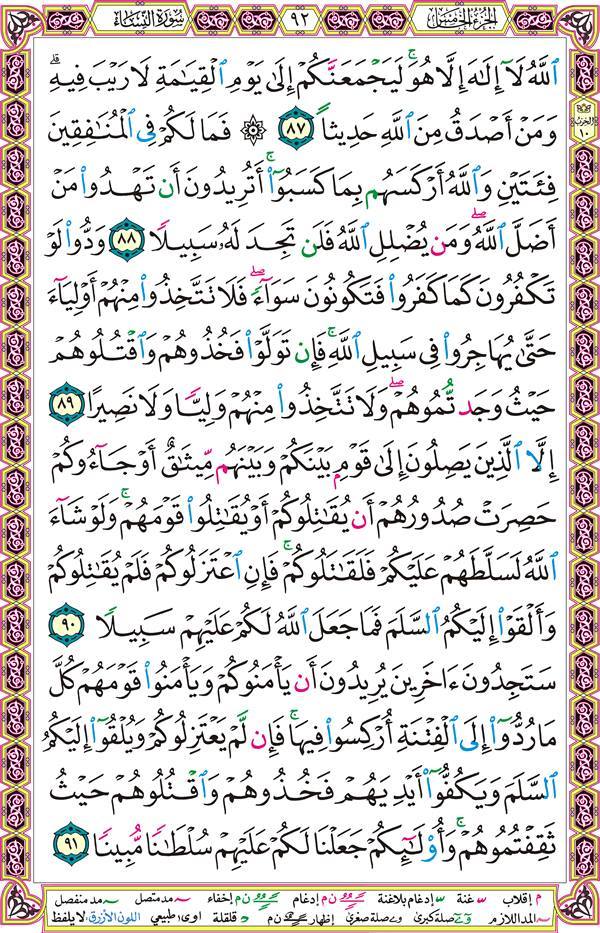 الجزء الخامس ٩٢ سورة النساء
ٱللَّهُ لَآ إِلَٰهَ إِلَّا هُوَۚ لَيَجۡمَعَنَّكُمۡ إِلَىٰ يَوۡمِ ٱلۡقِيَٰمَةِ لَا رَيۡبَ فِيهِۗ
وَمَنۡ أَصۡدَقُ مِنَ ٱللَّهِ حَدِيثٗا ٨٧ ۞ فَمَا لَكُمۡ فِي ٱلۡمُنَٰفِقِينَ
الحزب ١٠
فِئَتَيۡنِ وَٱللَّهُ أَرۡكَسَهُم بِمَا كَسَبُوٓاْۚ أَتُرِيدُونَ أَن تَهۡدُواْ مَنۡ
أَضَلَّ ٱللَّهُۖ وَمَن يُضۡلِلِ ٱللَّهُ فَلَن تَجِدَ لَهُۥ سَبِيلٗا ٨٨ وَدُّواْ لَوۡ
تَكۡفُرُونَ كَمَا كَفَرُواْ فَتَكُونُونَ سَوَآءٗۖ فَلَا تَتَّخِذُواْ مِنۡهُمۡ أَوۡلِيَآءَ
حَتَّىٰ يُهَاجِرُواْ فِي سَبِيلِ ٱللَّهِۚ فَإِن تَوَلَّوۡاْ فَخُذُوهُمۡ وَٱقۡتُلُوهُمۡ
حَيۡثُ وَجَدتُّمُوهُمۡۖ وَلَا تَتَّخِذُواْ مِنۡهُمۡ وَلِيّٗا وَلَا نَصِيرًا ٨٩
إِلَّا ٱلَّذِينَ يَصِلُونَ إِلَىٰ قَوۡمِۭ بَيۡنَكُمۡ وَبَيۡنَهُم مِّيثَٰقٌ أَوۡ جَآءُوكُمۡ
حَصِرَتۡ صُدُورُهُمۡ أَن يُقَٰتِلُوكُمۡ أَوۡ يُقَٰتِلُواْ قَوۡمَهُمۡۚ وَلَوۡ شَآءَ
ٱللَّهُ لَسَلَّطَهُمۡ عَلَيۡكُمۡ فَلَقَٰتَلُوكُمۡۚ فَإِنِ ٱعۡتَزَلُوكُمۡ فَلَمۡ يُقَٰتِلُوكُمۡ
وَأَلۡقَوۡاْ إِلَيۡكُمُ ٱلسَّلَمَ فَمَا جَعَلَ ٱللَّهُ لَكُمۡ عَلَيۡهِمۡ سَبِيلٗا ٩٠
سَتَجِدُونَ ءَاخَرِينَ يُرِيدُونَ أَن يَأۡمَنُوكُمۡ وَيَأۡمَنُواْ قَوۡمَهُمۡ كُلَّ
مَا رُدُّوٓاْ إِلَى ٱلۡفِتۡنَةِ أُرۡكِسُواْ فِيهَاۚ فَإِن لَّمۡ يَعۡتَزِلُوكُمۡ وَيُلۡقُوٓاْ إِلَيۡكُمُ
ٱلسَّلَمَ وَيَكُفُّوٓاْ أَيۡدِيَهُمۡ فَخُذُوهُمۡ وَٱقۡتُلُوهُمۡ حَيۡثُ
ثَقِفۡتُمُوهُمۡۚ وَأُوْلَٰٓئِكُمۡ جَعَلۡنَا لَكُمۡ عَلَيۡهِمۡ سُلۡطَٰنٗا مُّبِينٗا ٩١
م إقلاب غنة إدغام بلاغنة ن م إدغام ن م إخفاء مد متصل مد منفصل
المد اللازم صلة كبرى صلة صغرى إظهار ن م قلقلة اوى طبيعي اللون الأزرق: لا يلفظ